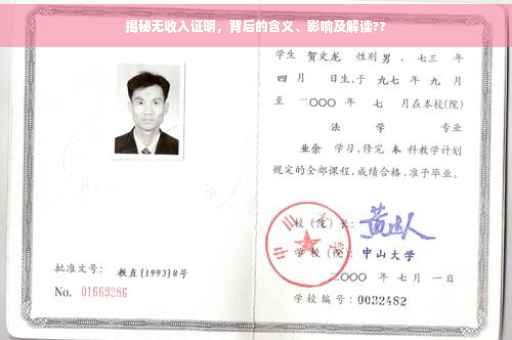 揭秘无收入证明，背后的含义、影响及解读??
学生 贺文龙 性别 男，七三 年
四 月 日生，于 九七 年 九 月
至 二〇〇〇 年 七 月在本校(院)
法 学 专业
业余 学习，修完 本 科教学计划
规定的全部课程，成绩合格，准予毕业。
校(院)长：
学校(院)：中山大学
二〇〇〇 年 七月 一日
批准文号：教直(1993)8号
No. 01669286
学校编号：0032482